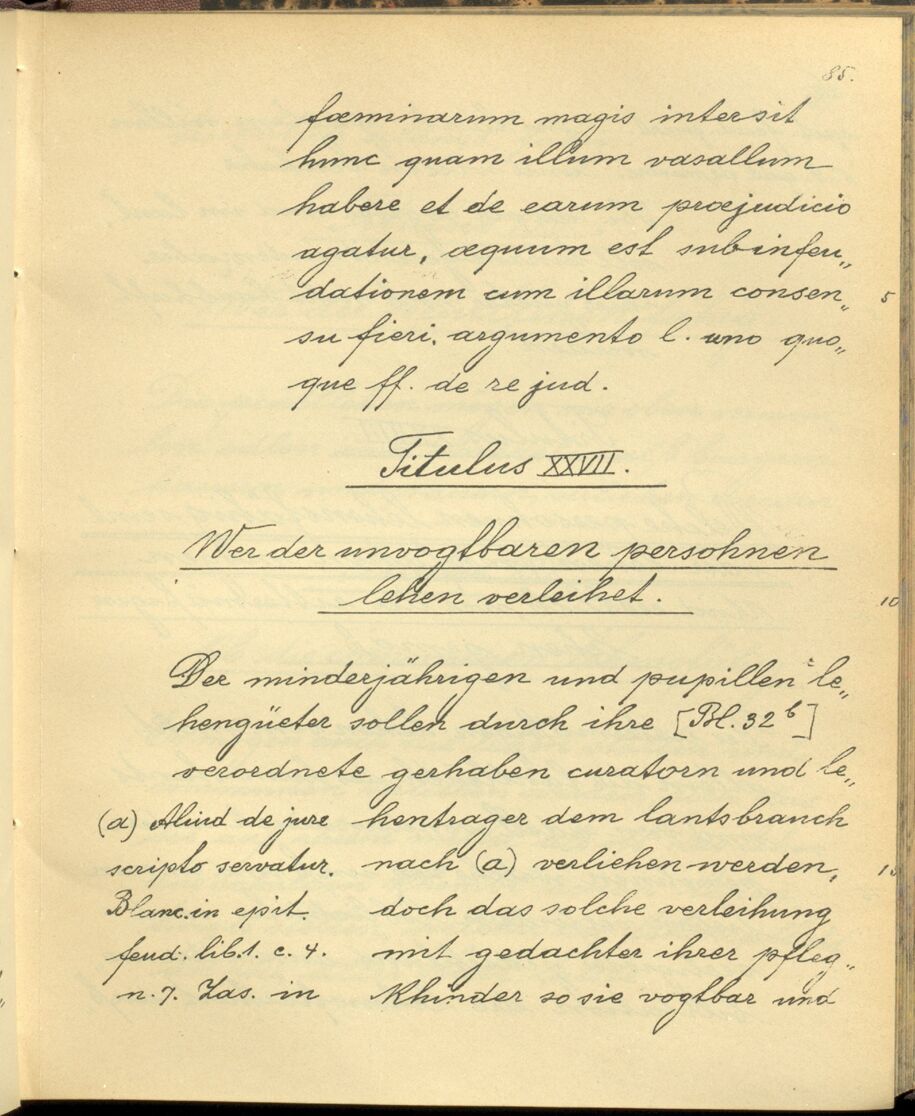 85.
fœminarum magis intersit
hunc quam illum vasallum
habere et de earum præjudicio
agatur, æquum est subinfeu„
dationem cum illarum consen„ 5
su fieri. argumento l. uno quo„
que ff. de re jud.
Titulus XXVII.
Wer der unvogtbaren persohnen
lehen verleihet. 10
Der minderjährigen und pupillen le„
hengüeter sollen durch ihre [Bl. 32b]
verordnete gerhaben curatorn und le„
hentrager dem lantsbrauch
nach (a) verliehen werden, 15
doch das solche verleihung
mit gedachter ihrer pfleg„
khinder so sie vogtbar und
(a) Aliud de jure
scripto servatur.
Blanc. in epit.
feud. lib. 1. c. 4.
n. 7. Zas. in